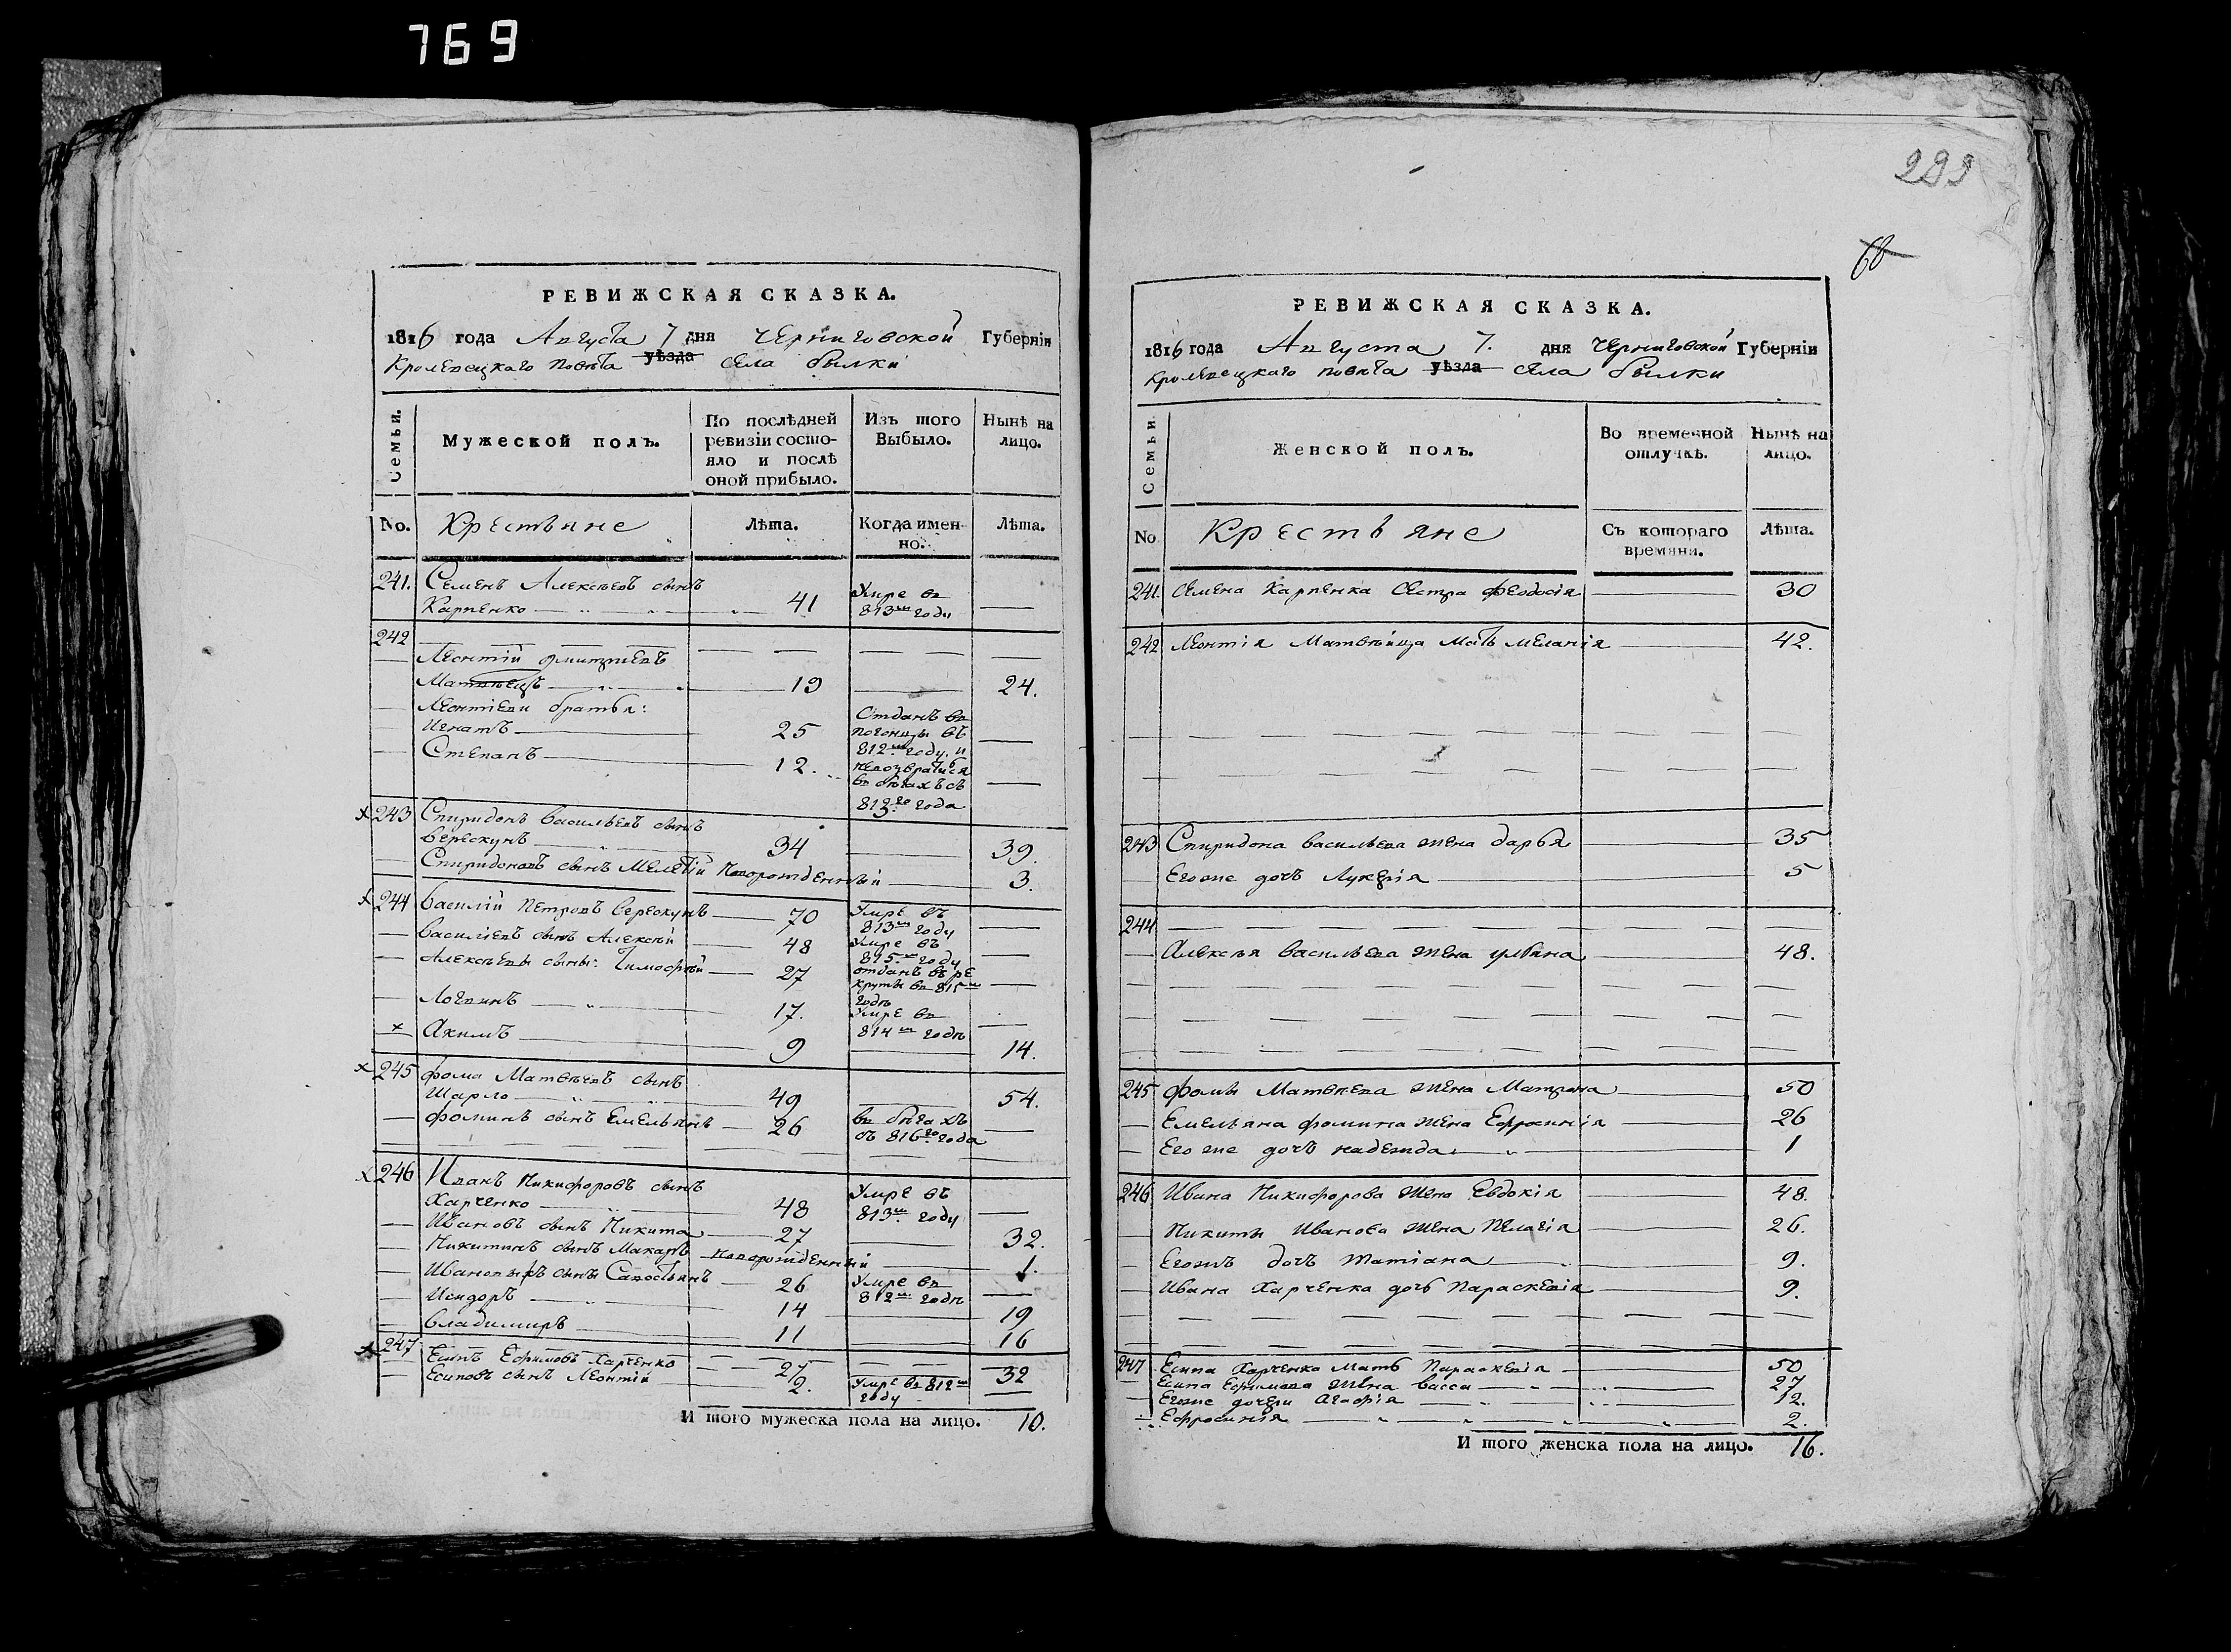 769
РЕВИЖСКАЯ СКАЗКА.
1816 года Августа 7 дня Черниговской Губерніи
Кролевецкаго повѣта уѣзда села билки
Семьи.
Мужеской полъ.
По послѣдней ревизіи состояло и послѣ оной прибыло.
Изъ того Выбыло.
Нынѣ на лицо.
No. Крестьяне Лѣта. Когда именно. Лѣта.
241. Семенъ Алексѣевъ сынъ
Карпенко 41 Умре въ 813м году
242
Леонтій Дмитриевъ
Матвѣецъ 19 24.
Леонтіеви братья:
Игнатъ 25 Отданъ въ погонцы въ 812м году, и невозвратился
Степанъ 12. въ бѣгахъ съ 813го года
х 243 Спиридонъ Васильевъ сынъ
Верескунъ 34 39.
Спиридоновъ сынъ Мелетій Новорожденный 3.
х 244 Василій Петровъ Верескунъ 70 Умре въ 813м году
Василіевъ сынъ Алексѣй 48 Умре въ 815м году
Алексѣевы сыны: Тимофѣй 27 отданъ въ рекруты въ 815м годѣ
Логвинъ 17. Умре въ 814м годѣ
х Акимъ 9 14.
х 245 Фома Матвѣевъ сынъ
Шарло 49 54.
Фоминъ сынъ Емельянъ 26 въ бѣгахъ съ 816го года
х 246 Иванъ Никифоровъ сынъ
Харченко 48 Умре въ 813м году
Ивановъ сынъ Никита 27 32.
Никитинъ сынъ Макаръ Новорожденный 1.
сыны Савостьянъ 26 Умре въ 812м годѣ
Исидоръ 14 19
Владимиръ 11 16
х 247
Есипъ Ефимовъ Харченко 27 32
Есиповъ сынъ Леонтій 2. Умре въ 812м году
И того мужеска пола на лицо. 10.
299
68
РЕВИЖСКАЯ СКАЗКА.
1816 года Августа 7. дня Черниговской Губерніи
Кролевецкаго повѣта уѣзда села билки
Семьи.
Женской полъ.
Во временной отлучкѣ.
Нынѣ на лицо.
No Крестьяне Съ котораго времяни. Лѣта.
241. Семена Карпенка сестра Феодосія 30
242 Леонтія Матвѣйца мать Меланія 42.
243 Спиридона Васильева жена Дарья 35
Егоже дочь Лукерія 5
244
Алексѣя Васильева жена Уліана 48.
245 Фомы Матвѣева жена Матрона 50
Емельяна Фомина жена Ефросинія 26
Его же дочь Надежда 1
246 Ивана Никифорова жена Евдокія 48.
Никиты Иванова жена Пелагія 26.
Егожъ дочь Татіана 9.
Ивана Харченка дочь Параскевія 9.
247 Есипа Харченка мать Параскевія 50
Есипа Ефимова жена Васса 27
Егоже дочери Агафія 12.
Ефросинія 2.
И того женска пола на лицо. 16.